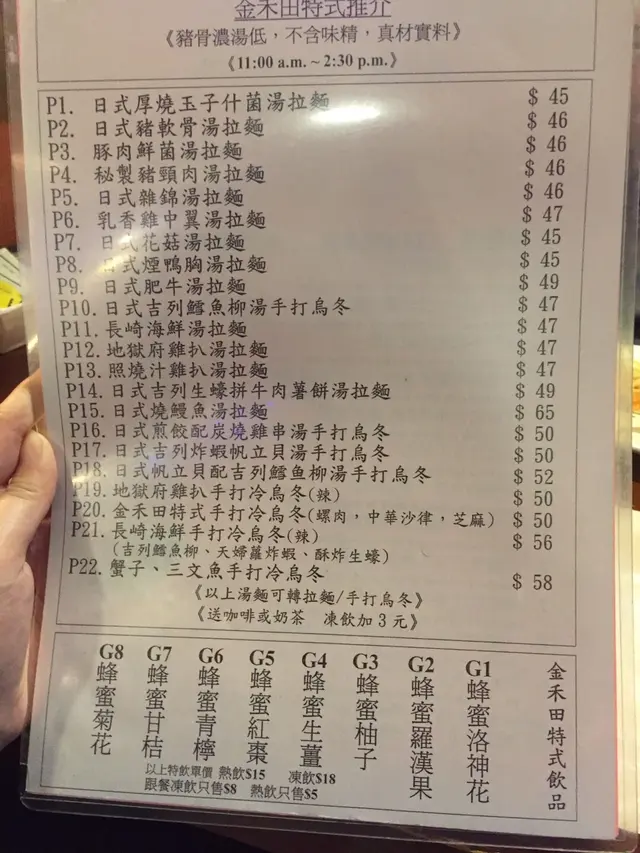 金禾田特式推介
《豬骨濃湯低，不含味精，真材實料》
《11:00 a.m. ~ 2:30 p.m.》
P1. 日式厚燒玉子什菌湯拉麵 $ 45
P2. 日式豬軟骨湯拉麵 $ 46
P3. 豚肉鮮菌湯拉麵 $ 46
P4. 秘製豬頸肉湯拉麵 $ 46
P5. 日式雜錦湯拉麵 $ 46
P6. 乳香雞中翼湯拉麵 $ 47
P7. 日式花菇湯拉麵 $ 45
P8. 日式煙鴨胸湯拉麵 $ 45
P9. 日式肥牛湯拉麵 $ 49
P10. 日式吉列鱈魚柳湯手打烏冬 $ 47
P11. 長崎海鮮湯拉麵 $ 47
P12. 地獄府雞扒湯拉麵 $ 47
P13. 照燒汁雞扒湯拉麵 $ 47
P14. 日式吉列生蠔拼牛肉薯餅湯拉麵 $ 49
P15. 日式燒鰻魚湯拉麵 $ 65
P16. 日式煎餃配炭燒雞串湯手打烏冬 $ 50
P17. 日式吉列炸蝦帆立貝湯手打烏冬 $ 50
P18. 日式帆立貝配吉列鱈鱼柳湯手打烏冬 $ 52
P19. 地獄府雞扒手打冷烏冬(辣) $ 50
P20. 金禾田特式手打冷烏冬(螺肉，中華沙律，芝麻) $ 50
P21. 長崎海鮮手打冷烏冬(辣) $ 56
(吉列鱈魚柳、天婦蘿炸蝦、酥炸生蠔)
P22. 蟹子、三文魚手打冷烏冬 $ 58
《以上湯麵可轉拉麵/手打烏冬》
《送咖啡或奶茶　凍飲加 3 元》
金禾田特式飲品
G1 蜂蜜洛神花
G2 蜂蜜羅漢果
G3 蜂蜜柚子
G4 蜂蜜生薑
G5 蜂蜜紅棗
G6 蜂蜜青檸
G7 蜂蜜甘桔
G8 蜂蜜菊花
以上特飲單價 熱飲$15　凍飲$18
跟餐凍飲只售$8　熱飲只售$5